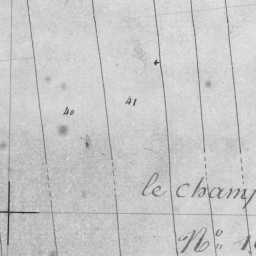 40
41
le champ
N°